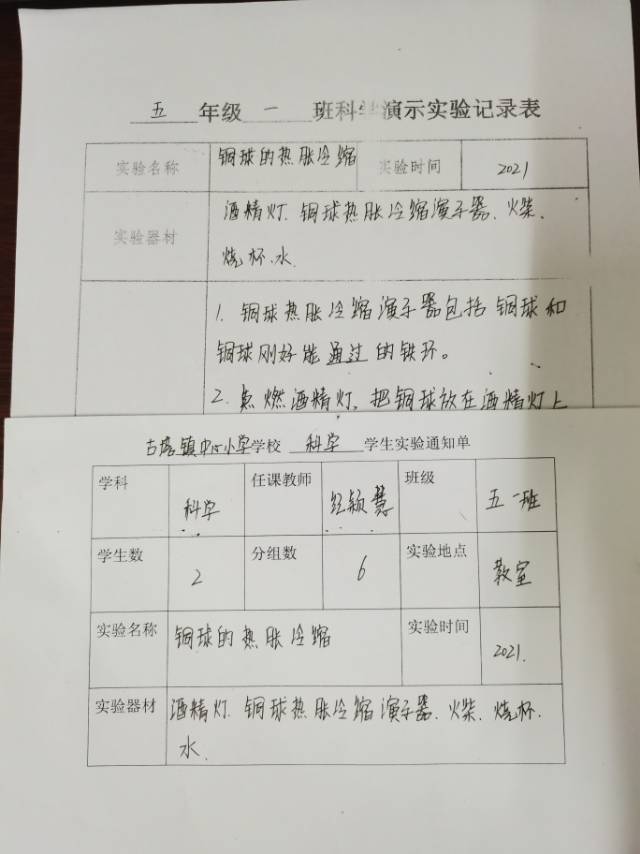 五 年级 一 班科学演示实验记录表
实验名称 铜球的热胀冷缩 实验时间 2021
实验器材 酒精灯.铜球热胀冷缩演示器.火柴.
烧杯.水
1. 铜球热胀冷缩演示器包括铜球和
铜球刚好能通过的铁环。
2. 点燃酒精灯,把铜球放在酒精灯上
古塔镇中心小学学校 科学 学生实验通知单
学科 科学 任课教师 颖慧 班级 五一班
学生数 2 分组数 6 实验地点 教室
实验名称 铜球的热胀冷缩 实验时间 2021.
实验器材 酒精灯.铜球热胀冷缩演示器.火柴.烧杯.
水.